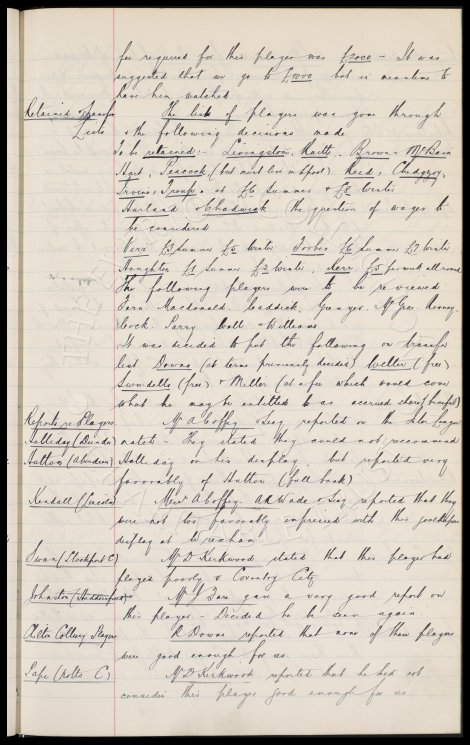 fee required for this player was £2000 - It was
suggested that we go to £1000 but in meantime to
have him watched
Retained Transfer Lists
The lists of players was gone through
& the following decisions made
To be retained :- Livingston, Raitt, Brown, McBain
Hart, Peacock (but must live in L'pool) Reid, Chedgzoy,
Irvine, Troup, at £6 Summer & £8 Winter
Harland & Chadwick the question of wages to
be considered
Virr £3 Summer £5 Winter Forbes £6 Summer £7 Winter
Houghton £1 Summer £2 Winter, Kerr £5 per week all round
The following players were to be reviewed
Fern Macdonald Caddick, Grenyer, McGrae, Rooney,
Cock, Parry Hall & Williams
It was decided to put the following on transfer
list Downs (at terms previously decided) Weller (free)
Swindells (free) & Miller (at a fee which would cover
what he may be entitled to as accrued share of benefit)
Reports re Players
Halliday (Dundee)
Hutton (Aberdeen)
Mr A Coffey & Secy reported on the Inter League
match - They stated they could not recommend
Halliday on his display, but reported very
favourably of Hutton (full back)
Kendall (Lincoln)
Messrs A Coffey, A R Wade & Secy reported that they
were not too favourably impressed with this goalkeepers
display at Wrexham
Swan (Stockport C)
Mr D Kirkwood stated that this player had
played poorly v Coventry City
Johnston (Huddersfield)
Mr J Fare gave a very good report on
this player - Decided he be seen again
Chilton Colliery Players
R Downs reported that none of these players
were good enough for us.
Pape (Notts C)
Mr D Kirkwood reported that he did not
consider this player good enough for us.